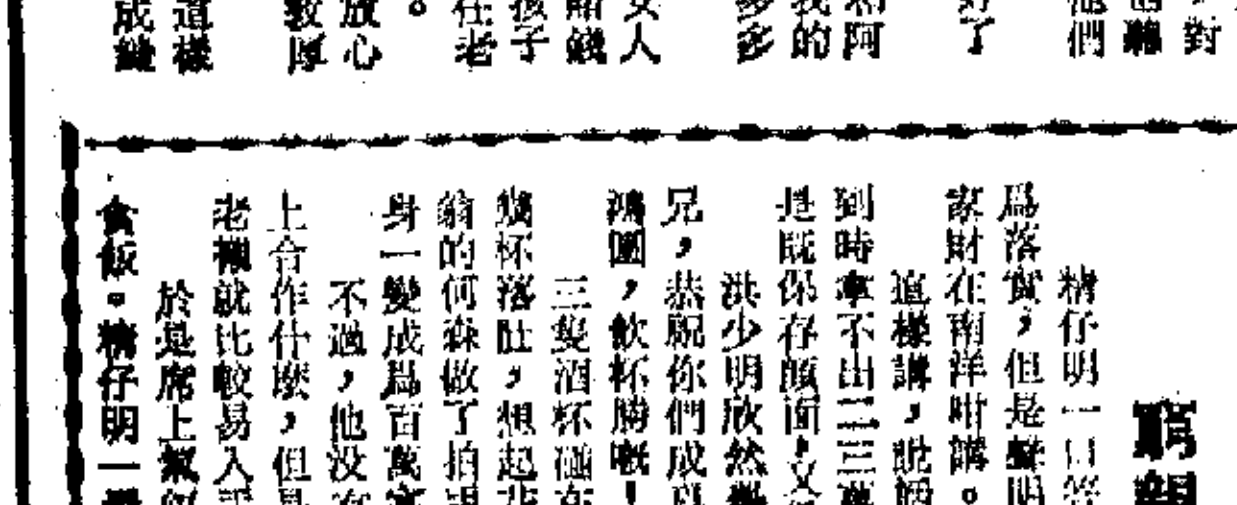 對
他們
好了
阿
我的
多多
女人
錢
孩子
在老
。
放心
數厚
這樣
成
窮親
精仔明一口答
爲落實，但是聲明
家財在南洋咁講。
這樣講，
到時拿不出二三萬
是既保存顏面，又
洪少明欣然舉
兄，恭祝你們成
鴻圖，飲杯勝嘅！
三隻酒杯碰在
幾杯落肚，想起
翁的何森做了拍
身一變成爲百萬富
不過，他没有
上合作什麽，但是
老襯就比較易入手
於是席上氣
食飯。精仔明一